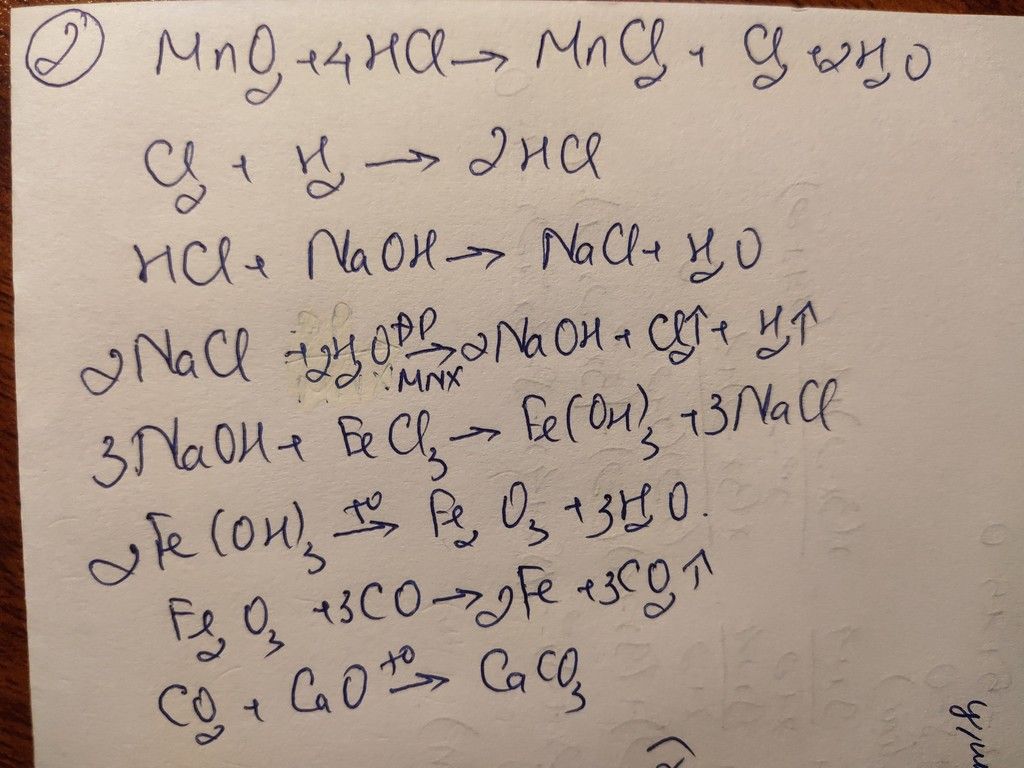 2) MnO₂ + 4HCl → MnCl₂ + Cl₂ + 2H₂O
Cl₂ + H₂ → 2HCl
HCl + NaOH → NaCl + H₂O
2NaCl + 2H₂O →đp mnx 2NaOH + Cl₂↑ + H₂↑
3NaOH + FeCl₃ → Fe(OH)₃ + 3NaCl
2Fe(OH)₃ →t⁰ Fe₂O₃ + 3H₂O.
Fe₂O₃ + 3CO → 2Fe + 3CO₂↑
CO₂ + CaO →t⁰ CaCO₃